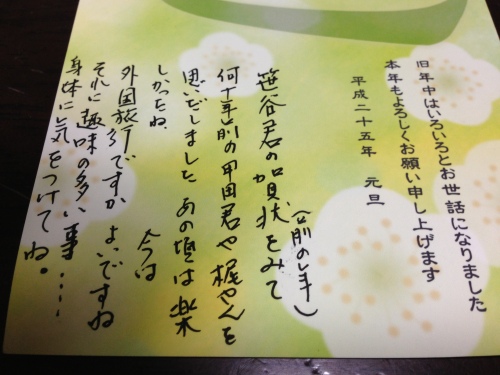 旧年中はいろいろとお世話になりました
本年もよろしくお願い申し上げます
平成二十五年 元旦
(前の年)
笹谷君の賀状をみて
何十年前の甲田君や梶やんを
思いだしました あの頃は楽
しかったね、 今は
外国旅行ですか よいですね
それに趣味の多い事....
身体に気をつけてね。